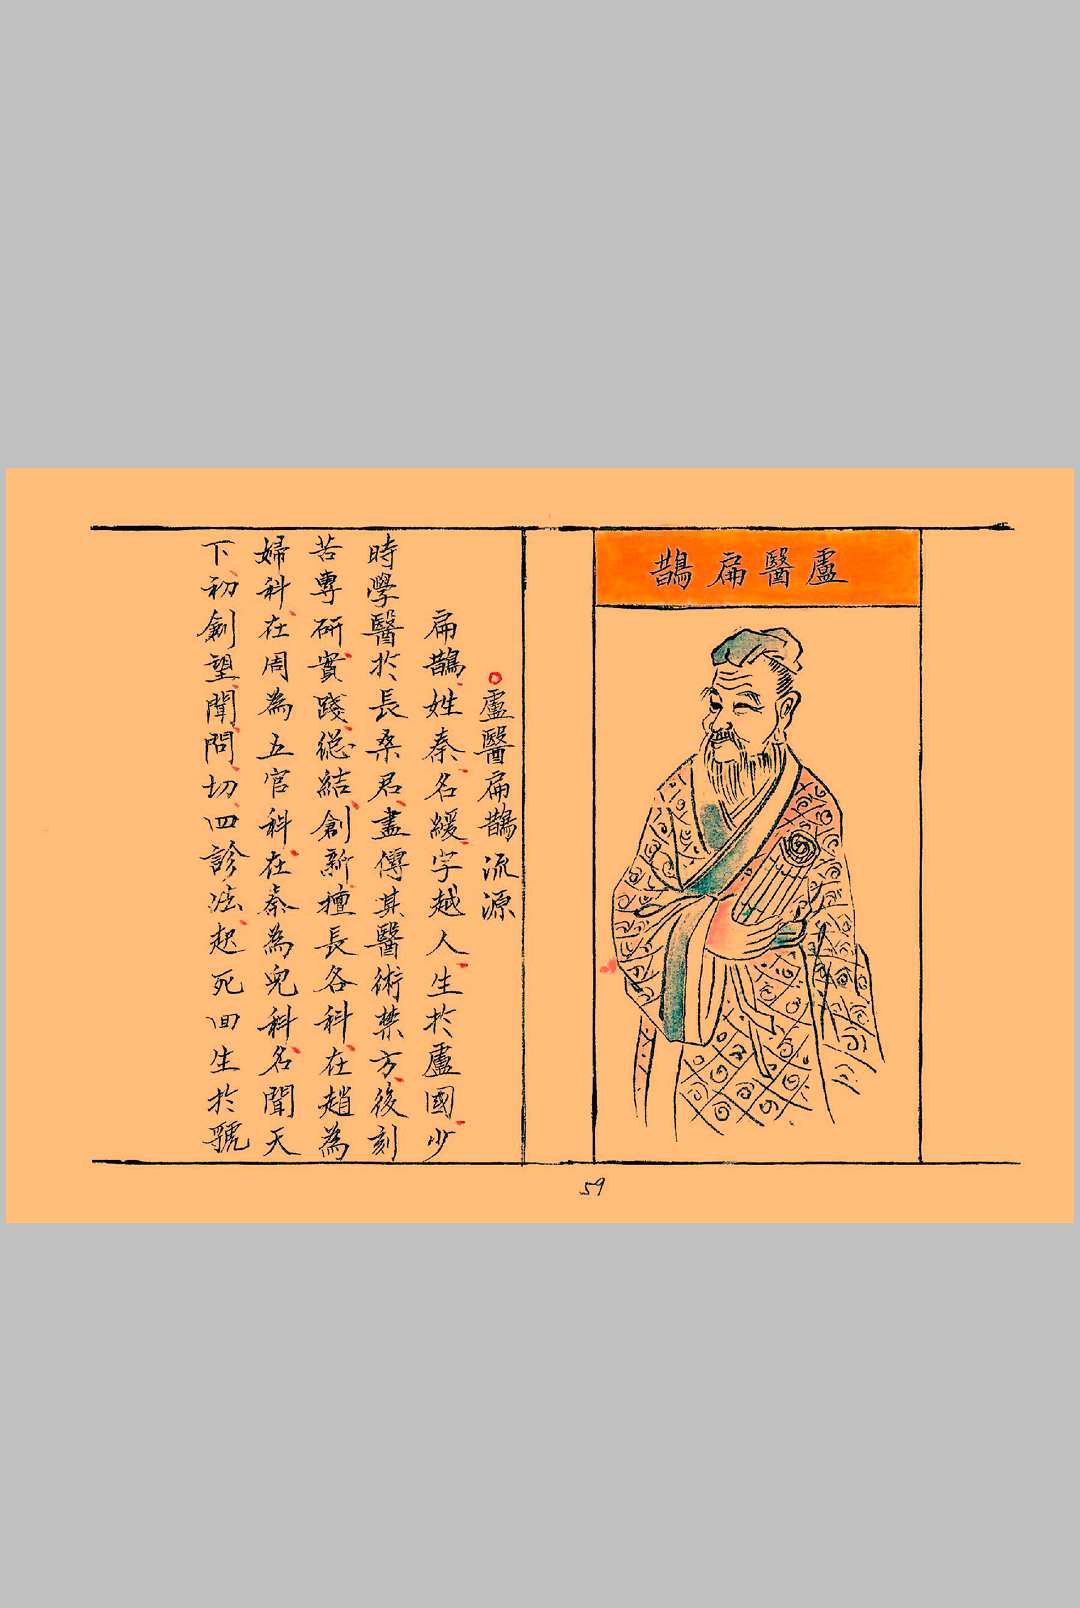 盧醫扁鵲
盧醫扁鵲流源
扁鵲、姓秦、名緩、字越人、生於盧國、少
時學醫於長桑君、盡傳其醫術禁方、後刻
苦專研、實踐、總結、創新、擅長各科、在趙為
婦科、在周為五官科、在秦為兒科、名聞天
下、初創望、聞、問、切、四診法、起死回生於虢
59